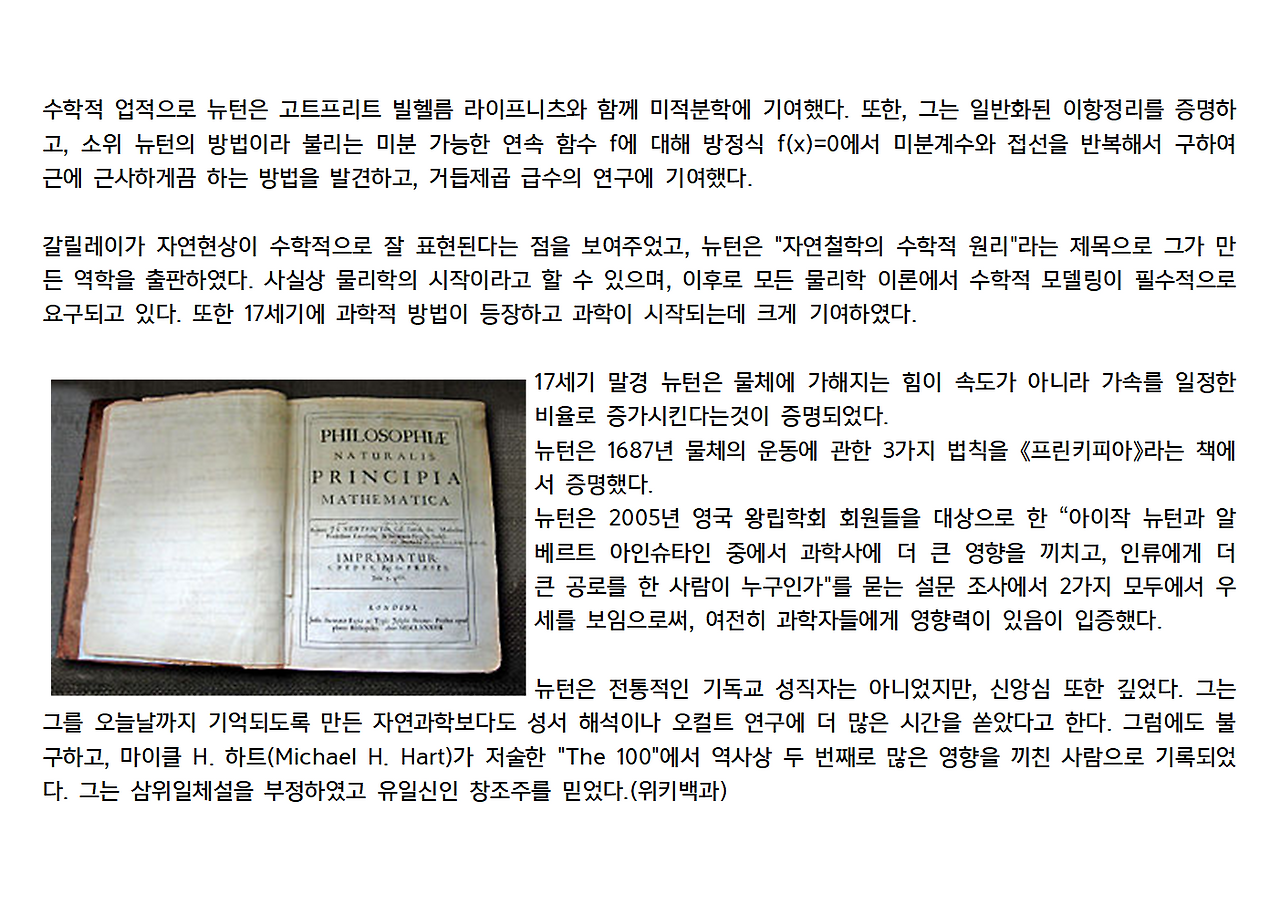 수학적 업적으로 뉴턴은 고트프리트 빌헬름 라이프니츠와 함께 미적분학에 기여했다. 또한, 그는 일반화된 이항정리를 증명하
고, 소위 뉴턴의 방법이라 불리는 미분 가능한 연속 함수 f에 대해 방정식 f(x)=0에서 미분계수와 접선을 반복해서 구하여
근에 근사하게끔 하는 방법을 발견하고, 거듭제곱 급수의 연구에 기여했다.
갈릴레이가 자연현상이 수학적으로 잘 표현된다는 점을 보여주었고, 뉴턴은 "자연철학의 수학적 원리"라는 제목으로 그가 만
든 역학을 출판하였다. 사실상 물리학의 시작이라고 할 수 있으며, 이후로 모든 물리학 이론에서 수학적 모델링이 필수적으로
요구되고 있다. 또한 17세기에 과학적 방법이 등장하고 과학이 시작되는데 크게 기여하였다.
PHILOSOPHIÆ
NATURALIS
PRINCIPIA
MATHEMATICA
IMPRIMATUR
LONDINI
17세기 말경 뉴턴은 물체에 가해지는 힘이 속도가 아니라 가속를 일정한
비율로 증가시킨다는것이 증명되었다.
뉴턴은 1687년 물체의 운동에 관한 3가지 법칙을 《프린키피아》라는 책에
서 증명했다.
뉴턴은 2005년 영국 왕립학회 회원들을 대상으로 한 “아이작 뉴턴과 알
베르트 아인슈타인 중에서 과학사에 더 큰 영향을 끼치고, 인류에게 더
큰 공로를 한 사람이 누구인가"를 묻는 설문 조사에서 2가지 모두에서 우
세를 보임으로써, 여전히 과학자들에게 영향력이 있음이 입증했다.
뉴턴은 전통적인 기독교 성직자는 아니었지만, 신앙심 또한 깊었다. 그는
그를 오늘날까지 기억되도록 만든 자연과학보다도 성서 해석이나 오컬트 연구에 더 많은 시간을 쏟았다고 한다. 그럼에도 불
구하고, 마이클 H. 하트(Michael H. Hart)가 저술한 "The 100"에서 역사상 두 번째로 많은 영향을 끼친 사람으로 기록되었
다. 그는 삼위일체설을 부정하였고 유일신인 창조주를 믿었다.(위키백과)